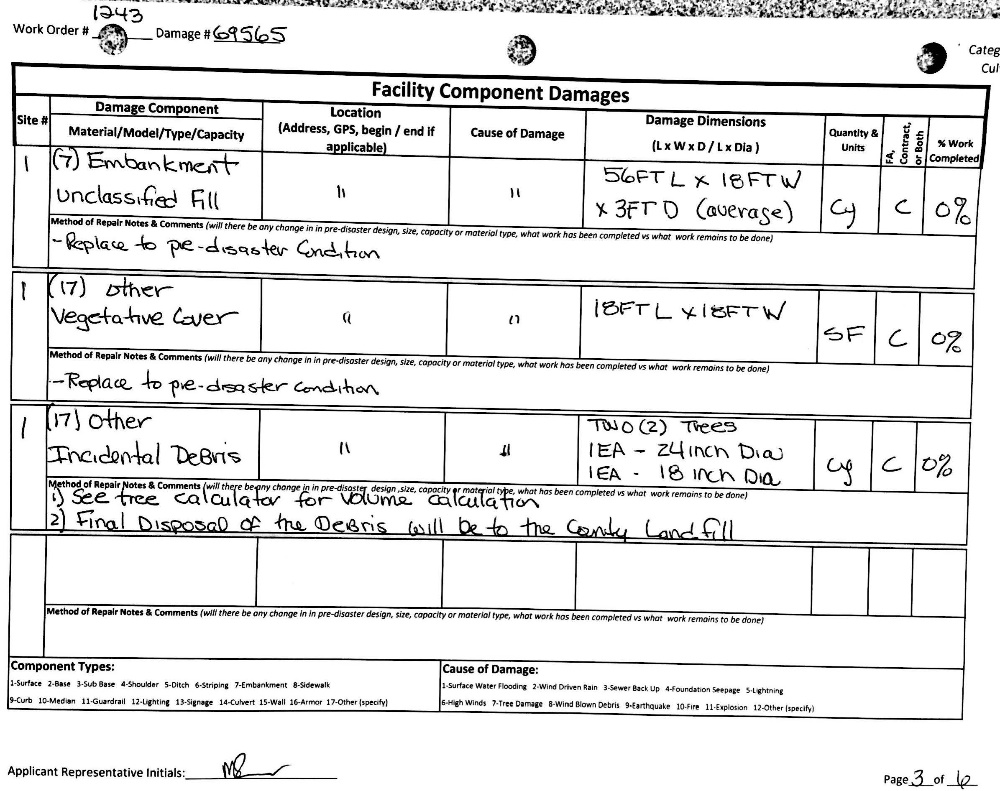 1243
Work Order # Damage # 69565
Categ
Cul
Facility Component Damages
Site #
Damage Component
Material/Model/Type/Capacity
Location
(Address, GPS, begin / end if
applicable)
Cause of Damage
Damage Dimensions
(L x W x D / L x Dia )
Quantity &
Units
FA,
Contract,
or Both
% Work
Completed
1
(7) Embankment
Unclassified Fill
"
"
56FT L x 18FT W
x 3FT D (average)
Cy
C
0%
Method of Repair Notes & Comments (will there be any change in in pre-disaster design, size, capacity or material type, what work has been completed vs what work remains to be done)
-Replace to pre-disaster Condition
1
(17) other
Vegetative Cover
"
"
18FT L x 18FT W
SF
C
0%
Method of Repair Notes & Comments (will there be any change in in pre-disaster design, size, capacity or material type, what work has been completed vs what work remains to be done)
-Replace to pre-disaster Condition
1
(17) Other
Incidental DeBris
"
"
TWO (2) Trees
1EA - 24 inch Dia
1EA - 18 inch Dia
cy
C
0%
Method of Repair Notes & Comments (will there be any change in in pre-disaster design ,size, capacity or material type, what has been completed vs what work remains to be done)
1) See tree calculator for Volume calculation
2) Final Disposal of the DeBris will be to the County Landfill
Method of Repair Notes & Comments (will there be any change in in pre-disaster design, size, capacity or material type, what work has been completed vs what work remains to be done)
Component Types:
1-Surface 2-Base 3-Sub Base 4-Shoulder 5-Ditch 6-Striping 7-Embankment 8-Sidewalk
9-Curb 10-Median 11-Guardrail 12-Lighting 13-Signage 14-Culvert 15-Wall 16-Armor 17-Other (specify)
Cause of Damage:
1-Surface Water Flooding 2-Wind Driven Rain 3-Sewer Back Up 4-Foundation Seepage 5-Lightning
6-High Winds 7-Tree Damage 8-Wind Blown Debris 9-Earthquake 10-Fire 11-Explosion 12-Other (specify)
Applicant Representative Initials:
Page 3 of 6